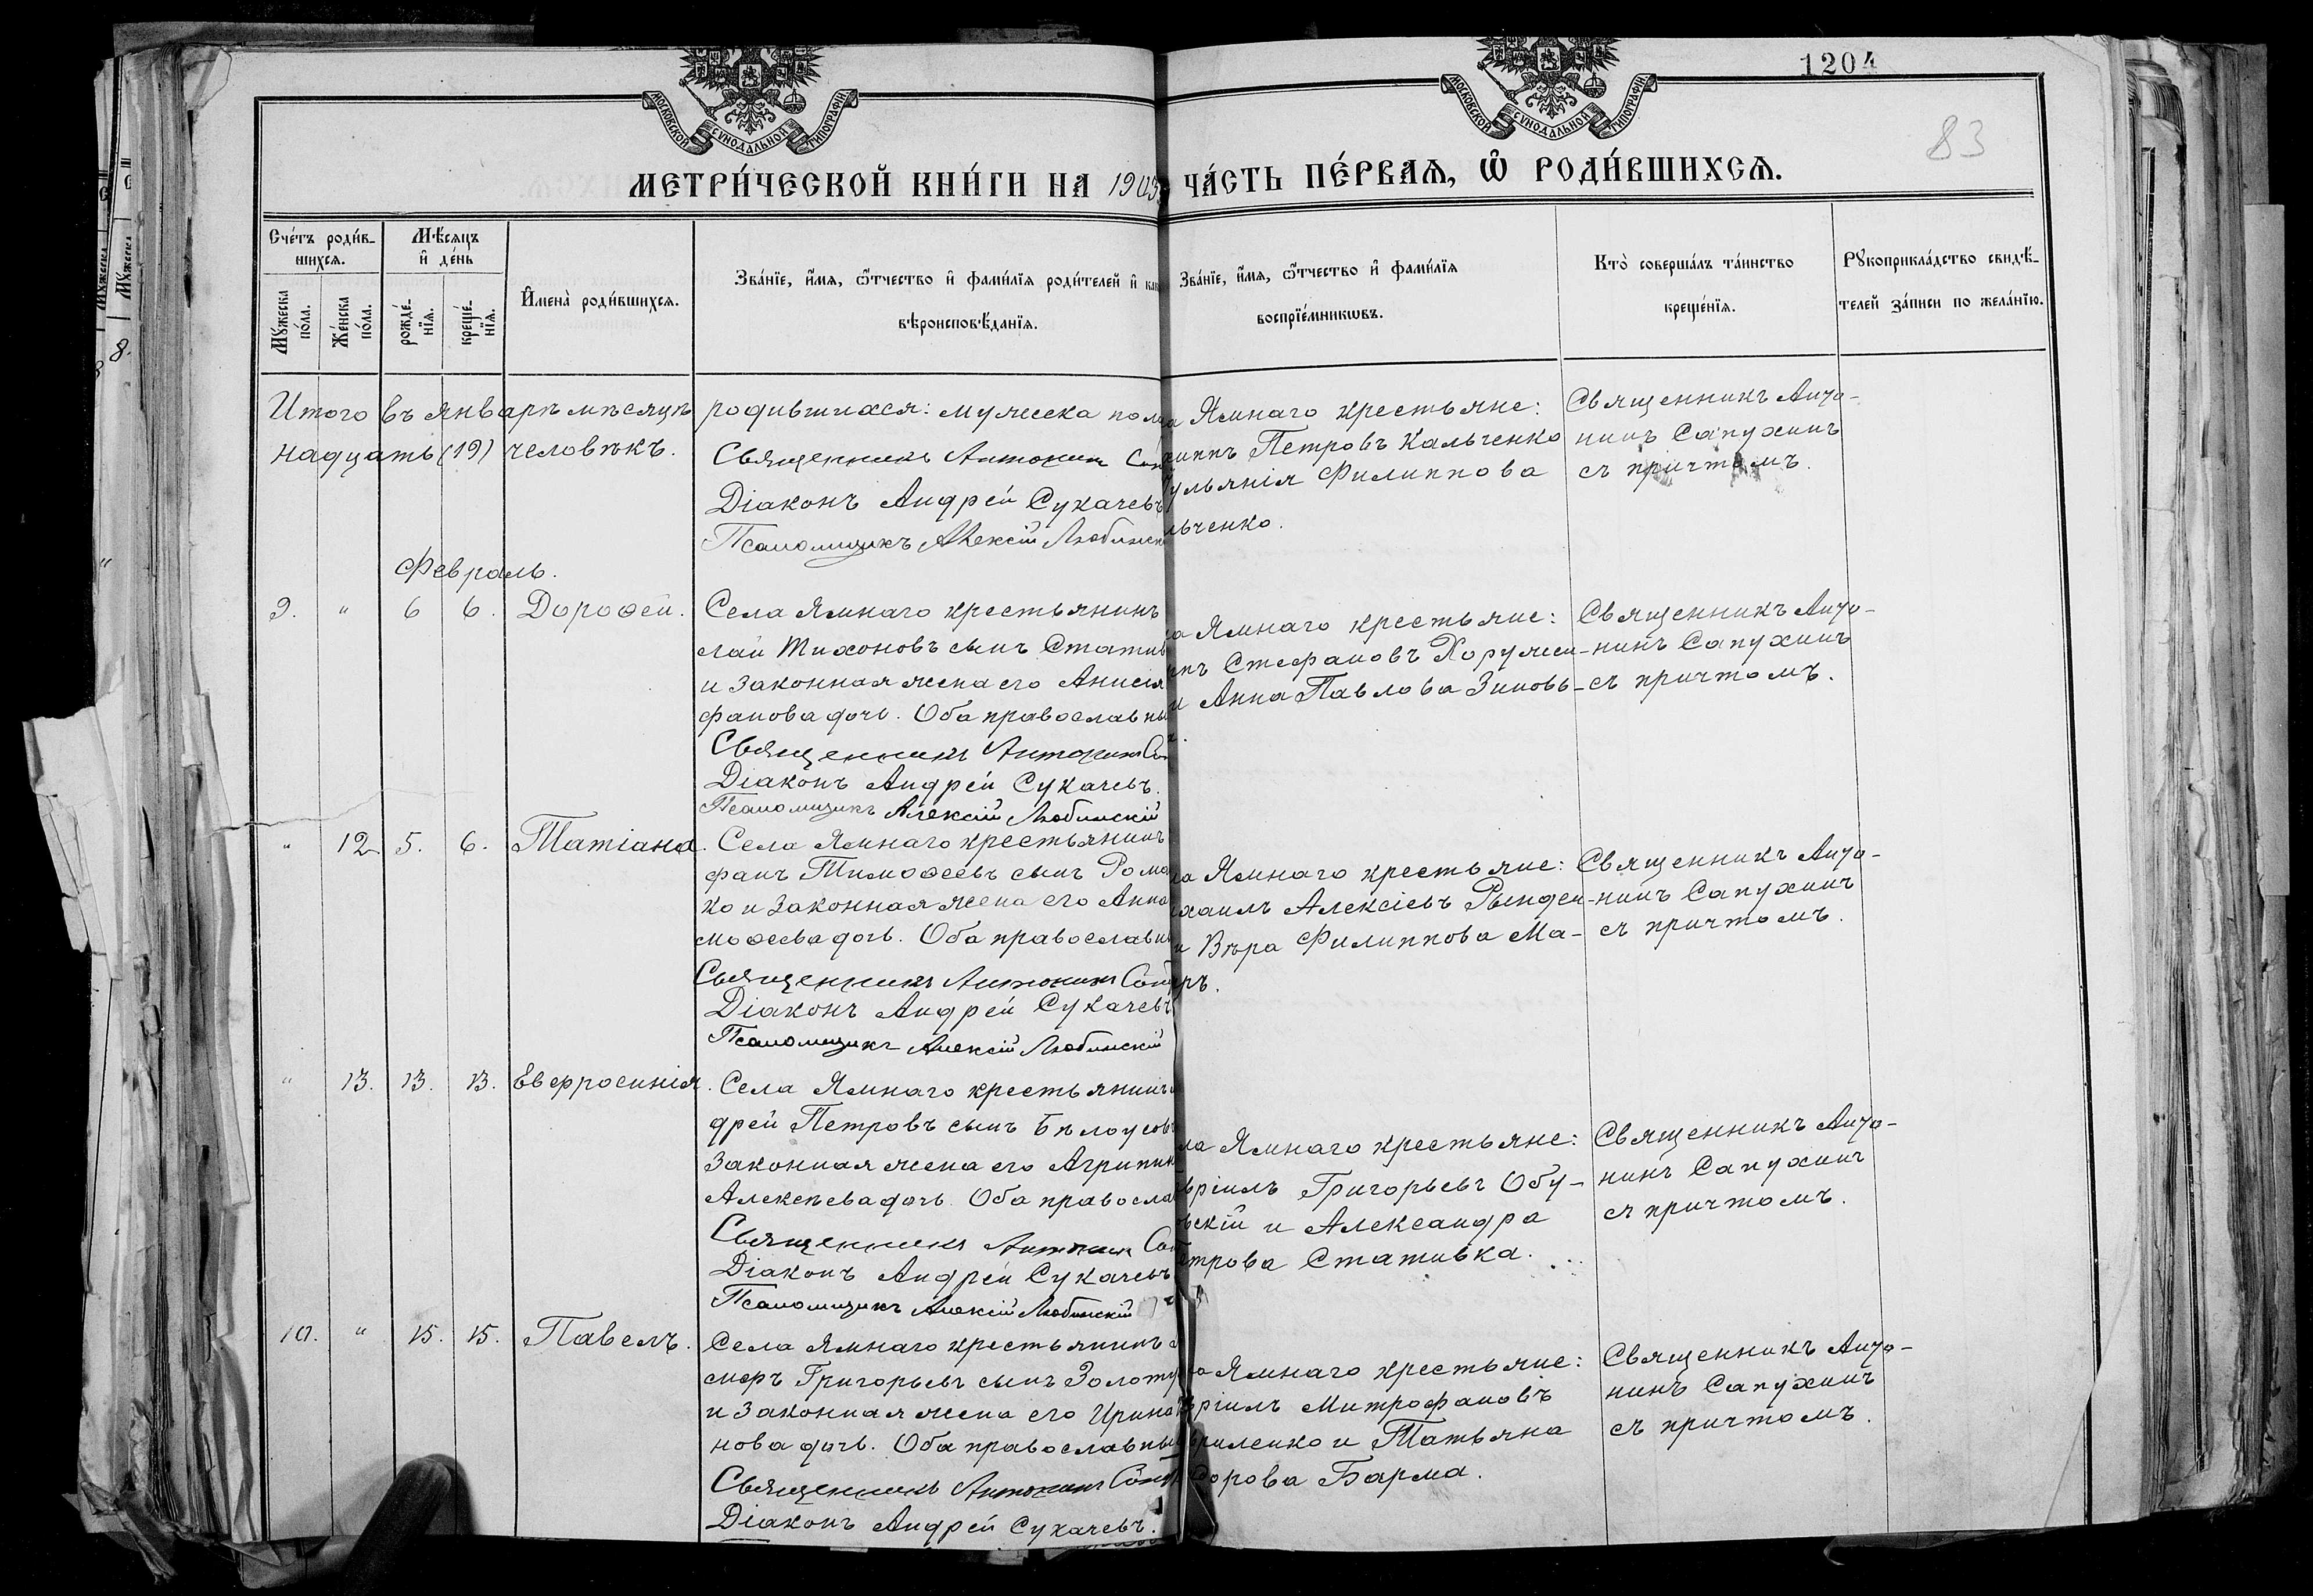 1204
83
МОСКОВСКОЙ СѴНОДАЛЬНОЙ ТИПОГРАФІИ
МОСКОВСКОЙ СѴНОДАЛЬНОЙ ТИПОГРАФІИ
МЕТРИ́ЧЕСКОЙ КНИ́ГИ НА 1903
ЧА́СТЬ ПЕ́РВАЯ, Ѡ҆ РОДИ́ВШИХСЯ.
Сче́тъ роди́в-
шихся.
Мꙋ́жеска по́ла.
Же́нска по́ла.
Мѣ́сяцъ и҆ де́нь
рожде́-
нїя.
креще́-
нїя.
И҆мена̀ роди́вшихся.
Зва́нїе, и҆́мя, ѻ҆́тчество и҆ фами́лїя роди́телей и҆
вѣроисповѣ́данїя.
Зва́нїе, и҆́мя, ѻ҆́тчество и҆ фами́лїя
воспрїе́мникѡвъ.
Кто̀ соверша́лъ та́инство
креще́нїя.
Рꙋкоприкла́дство свидѣ́-
телей за́писи по жела́нїю.
Итого въ январѣ мѣсяцѣ родившихся: мужеска пола
надцать (19) человѣкъ.
Священникъ Антонинъ
Діаконъ Андрей Сукачевъ
Псаломщикъ Алексій Любинск
Ямнаго крестьяне:
иппъ Петровъ Кальченко
ульянія Филиппова
льченко.
Священникъ Анто-
нинъ Сапухинъ
съ причтомъ.
Февраль.
9. " 6 6. Дорофей.
Села Ямнаго крестьянинъ
лай Тихоновъ сынъ Статив
и законная жена его Анисія
фанова дочь. Оба православны
Священникъ Антонинъ
Діаконъ Андрей Сукачевъ.
Псаломщикъ Алексій Любинскій
ла Ямнаго крестьяне:
Стефановъ Хоружен-
и Анна Павлова Зиновь-
Священникъ Анто-
нинъ Сапухинъ
съ причтомъ.
" 12. 5. 6. Татіана.
Села Ямнаго крестьянинъ
фанъ Тимофеевъ сынъ Рома
ко и законная жена его Анна
мофеева дочь. Оба православны
Священникъ Антонинъ
Діаконъ Андрей Сукачевъ
Псаломщикъ Алексій Любинскій
ла Ямнаго крестьяне:
хаилъ Алексіевъ Рынден-
и Вѣра Филиппова Ма-
ръ.
Священникъ Анто-
нинъ Сапухинъ
съ причтомъ.
" 13. 13. 13. Евфросинія.
Села Ямнаго крестьянинъ
дрей Петровъ сынъ Бѣлоусовъ
законная жена его Агрипин
Алексѣева дочь. Оба правосла
Священникъ Антонинъ
Діаконъ Андрей Сукачевъ
Псаломщикъ Алексій Любинскій
ла Ямнаго крестьяне:
вріилъ Григорьевъ Обу-
вскій и Александра
етрова Стативка.
Священникъ Анто-
нинъ Сапухинъ
съ причтомъ.
10. " 15. 15. Павелъ.
Села Ямнаго крестьянинъ
Григорьевъ сынъ Золоту
и законная жена его Ирина
нова дочь. Оба православны
Священникъ Антонинъ
Діаконъ Андрей Сукачевъ.
ла Ямнаго крестьяне:
вріилъ Митрофановъ
риленко и Татьяна
дорова Барма.
Священникъ Анто-
нинъ Сапухинъ
съ причтомъ.